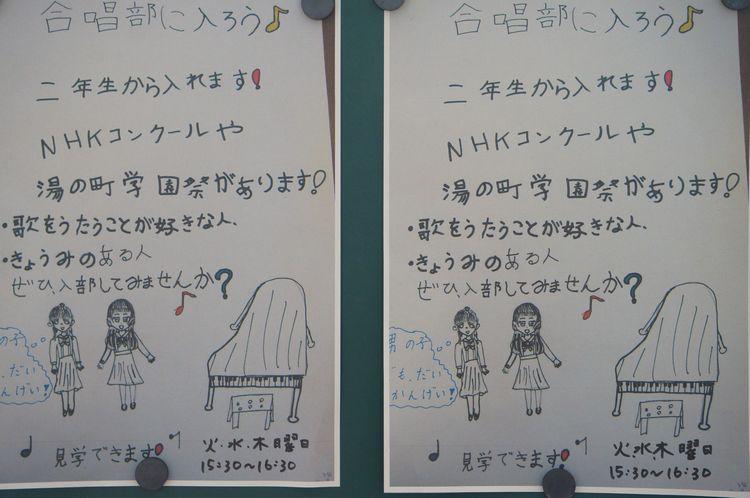 合唱部に入ろう♪
二年生から入れます!
NHKコンクールや
湯の町学園祭があります!
・歌をうたうことが好きな人、
・きょうみのある人
ぜひ、入部してみませんか?
の子
だい
んげい!
見学できます!
火、水、木曜日
15:30〜16:30
合唱部に入ろう♪
二年生から入れます!
NHKコンクールや
湯の町学園祭があります!
・歌をうたうことが好きな人、
・きょうみのある人
ぜひ、入部してみませんか?
男の子
も、だい
かんげい!
見学できます!
火、水、木曜日
15:30〜16:30